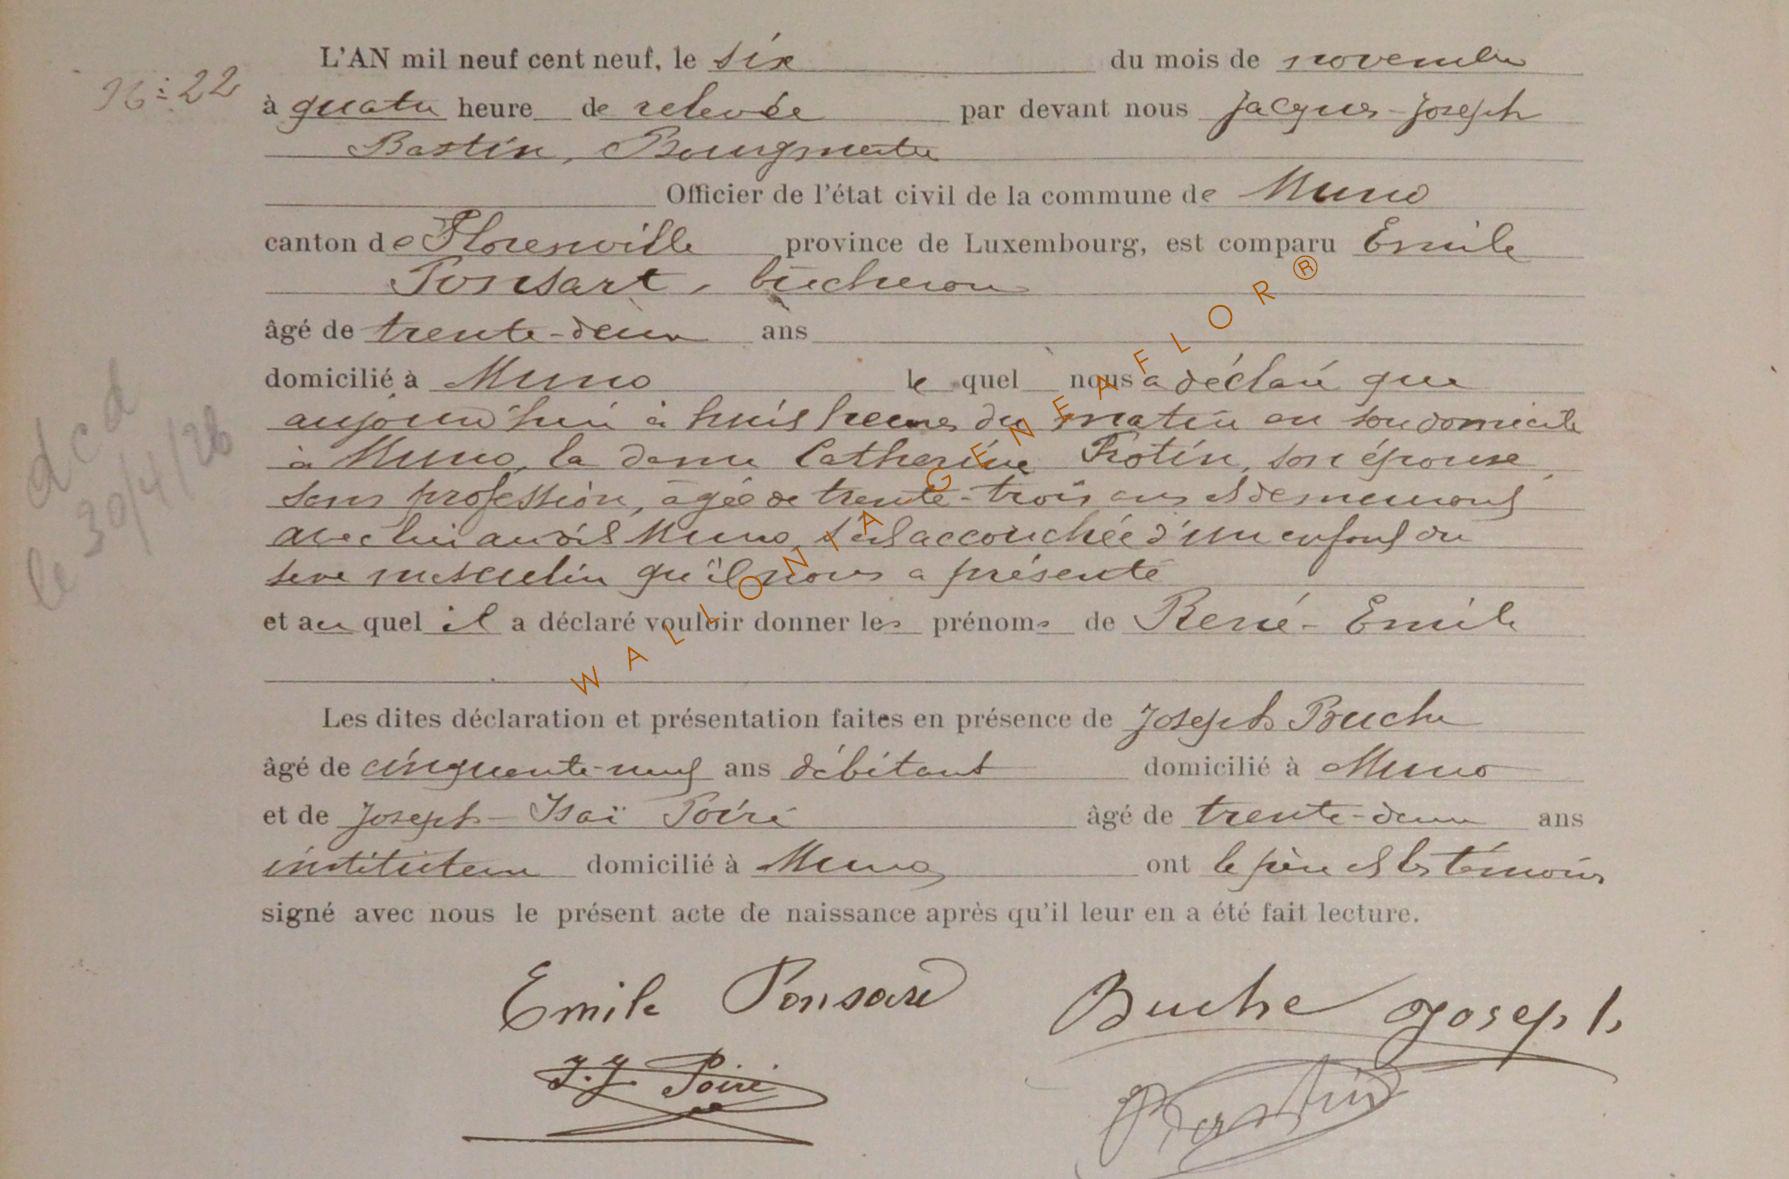 L'AN mil neuf cent neuf, le six du mois de novembre
Nº: 22
à quatre heure de relevée par devant nous Jacques-Joseph
Bastin, Bourgmestre
Officier de l'état civil de la commune de Muno
canton de Florenville province de Luxembourg, est comparu Emile
Ponsart, bûcheron
âgé de trente-deux ans
domicilié à Muno le quel nous a déclaré que
aujourd'hui à huit heures du matin en son domicile
à Muno, la dame Catherine Protin, son épouse,
sans profession, âgée de trente-trois ans et demeurant
avec lui audit Muno, s'est accouchée d'un enfant du
sexe masculin qu'il nous a présenté
et au quel il a déclaré vouloir donner les prénoms de René-Emile
Les dites déclaration et présentation faites en présence de Joseph Buche
âgé de cinquante-neuf ans débitant domicilié à Muno
et de Joseph-Isaï Poiré âgé de trente-deux ans
instituteur domicilié à Muno, ont le père et les témoins
signé avec nous le présent acte de naissance après qu'il leur en a été fait lecture.
Emile Ponsard Buche Joseph
J.J. Poiré Bastin
dcd
le 30/4/26
WALLONIA GENEAFLOR®